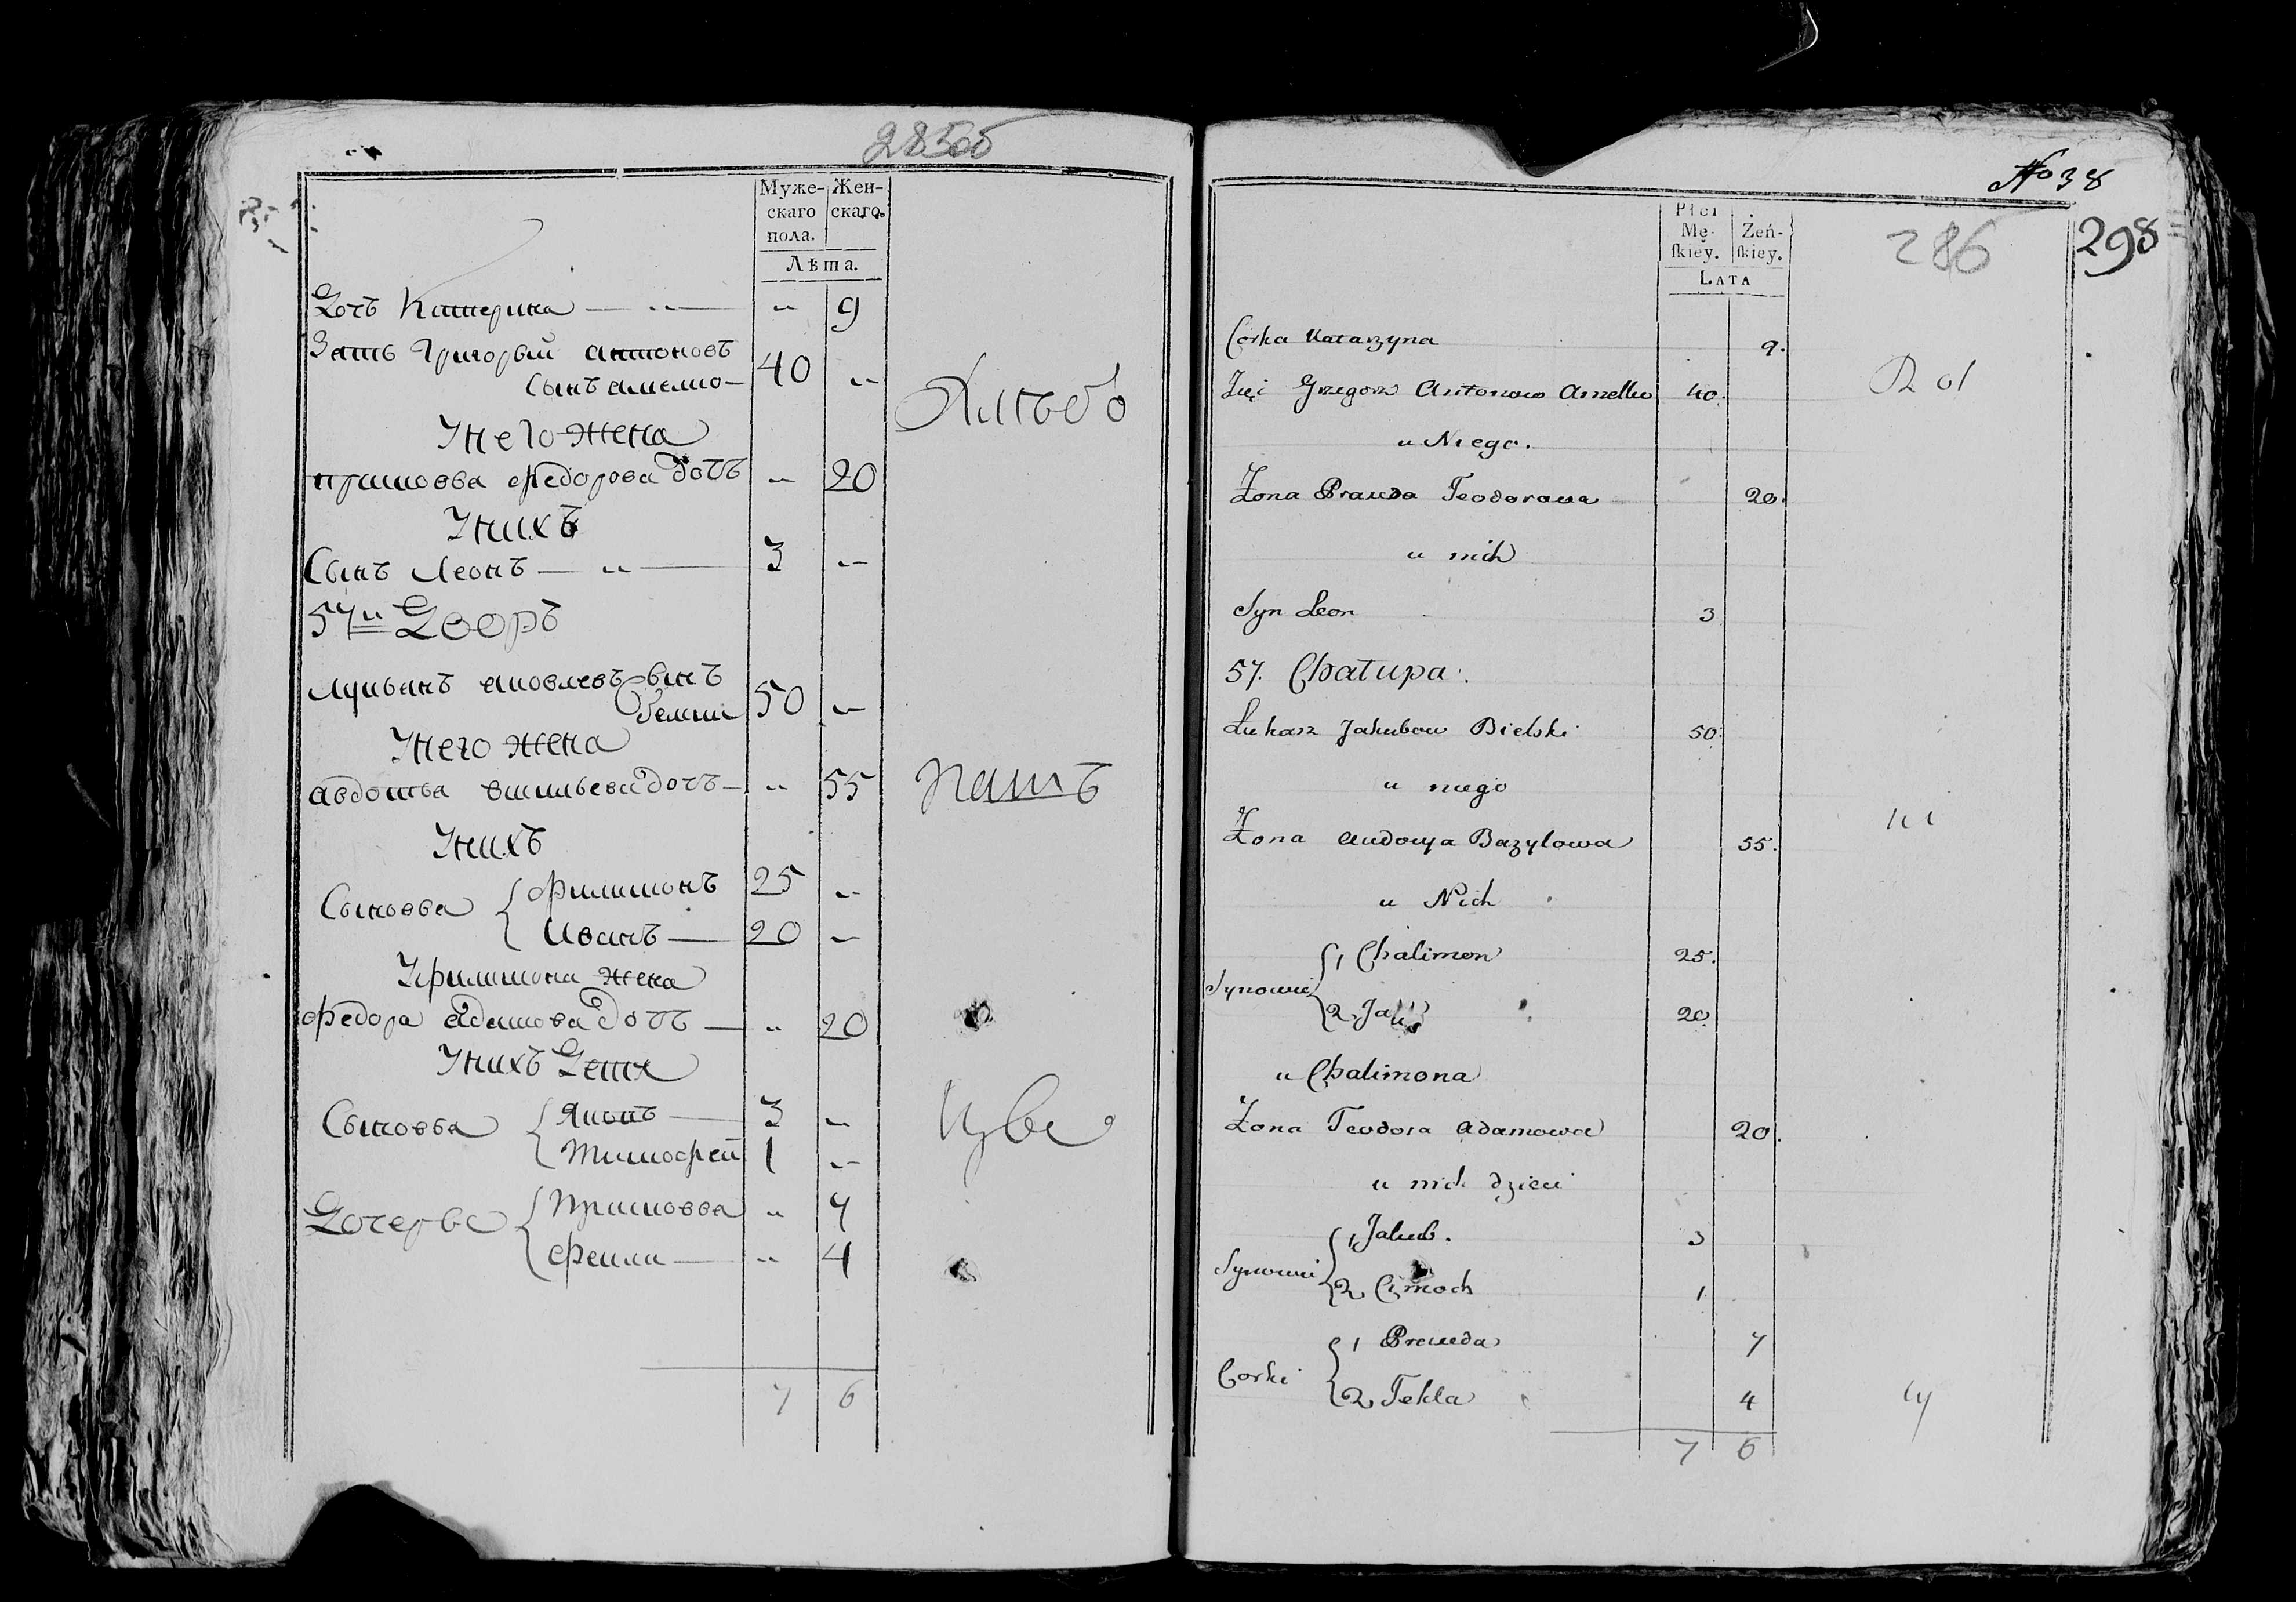 285об
Муже-
скаго
пола.
Жен-
скаго.
Лѣта.
Дочь Катерина — " — " 9
Зять Григорый Антоновъ
сынъ амелко — 40 "
Хлѣбо
У него жена
Прасковья Федорова дочь " 20
У нихъ
Сынъ Леонъ — " — 3 "
57й Дворъ
Лукьянъ Яковлевъ сынъ
50 "
У него жена
Авдотья Васильева дочь — " 55
Пашъ
У нихъ
Сыновья { Филимонъ 25 "
Иванъ — 20 "
У Филимона жена
Федора Адамова дочь — " 20
У нихъ Дети
Сыновья { Яковъ — 3 "
Тимофей 1 "
Дочерье { Прасковья " 7
Фекла — " 4
7 6
No 38
298
286
Płci
Mę-
ſkiey.
Żeń-
ſkiey.
LATA
Corka Katarzyna 9.
Zięć Grzegorz Antonow Amelko 40.
Rol
u Niego.
Zona Prauda Teodorowa 20.
u nich
Syn Leon 3
57. Chałupa.
Łukasz Jakubow Bielski 50.
u niego
Zona Audocya Bazylowa 55.
u Nich
Synowie { 1 Chalimon 25.
2. Jan 20.
u Chalimona
Zona Teodora Adamowa 20.
u nich dzieci
Synowie { 1, Jakub. 3
2, Cimoch 1
Corki { 1 Prauda 7
2, Tekla 4
7 6